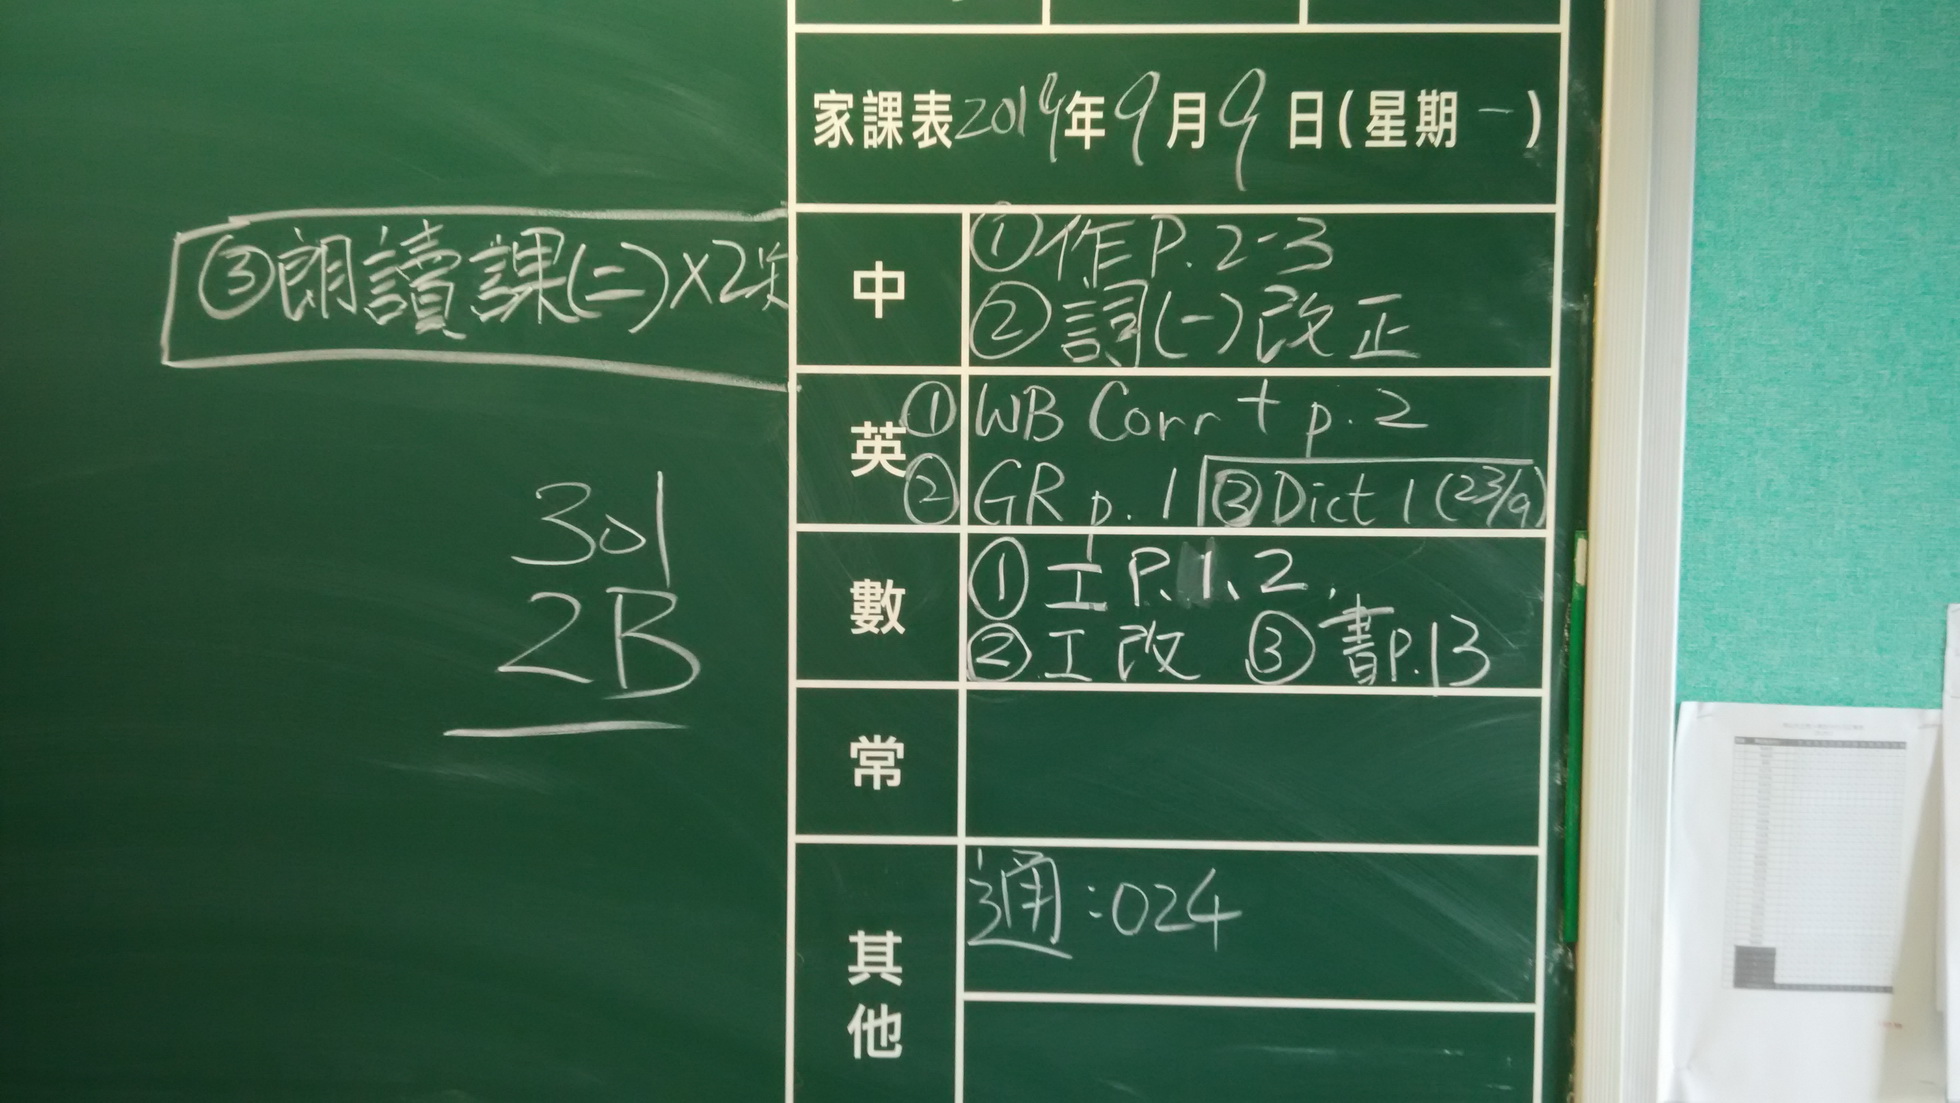 家課表2019年9月9日(星期一)
中
①作P.2-3
②詞(一)改正
③朗讀課(二)×2次
英
①WB Corr + p.2
②GR p.1 ③Dict 1 (23/9)
數
①工P.1、2.
②工改 ③書P.13
常
其他
通:024
301
2B